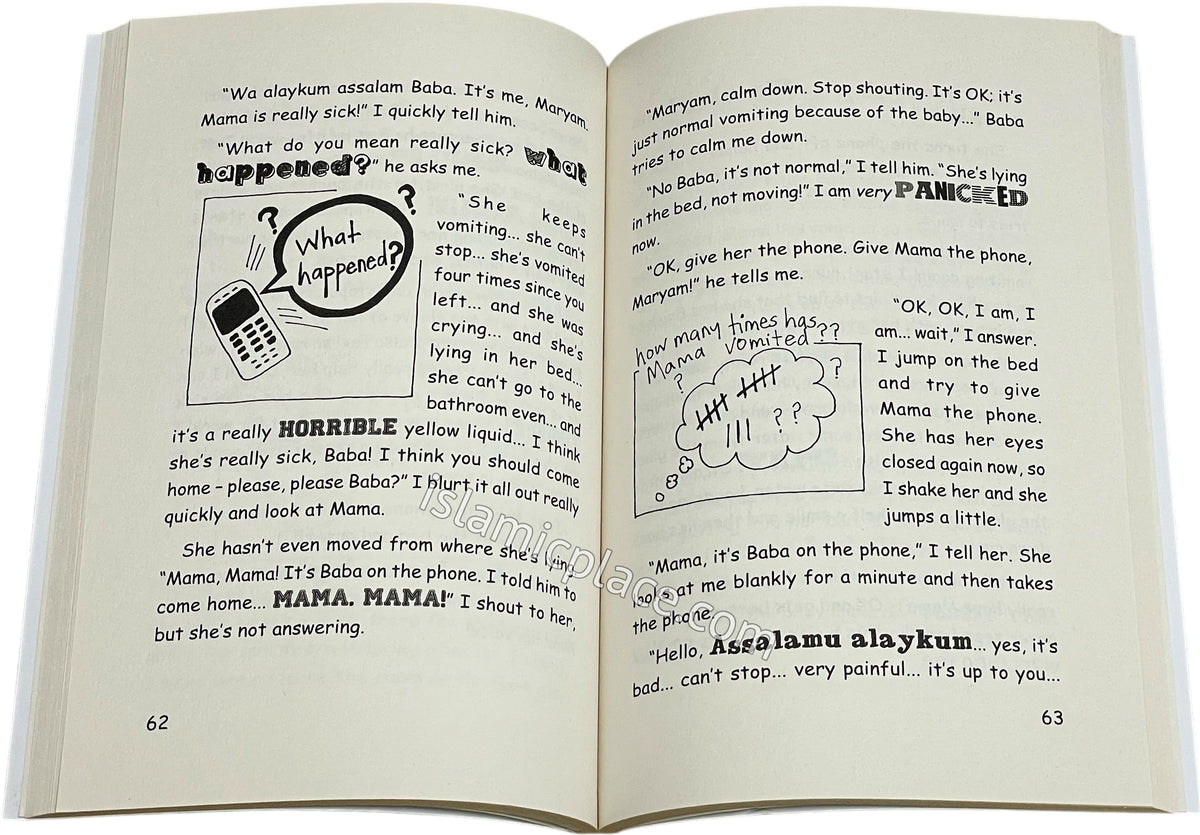 "Wa alaykum assalam Baba. It's me, Maryam.
Mama is really sick!" I quickly tell him.
"What do you mean really sick? what
happened?" he asks me.
?
?
What
happened?
"She keeps
vomiting... she can't
stop... she's vomited
four times since you
left... and she was
crying... and she's
lying in her bed...
she can't go to the
bathroom even... and
it's a really HORRIBLE yellow liquid... I think
she's really sick, Baba! I think you should come
home – please, please Baba?" I blurt it all out really
quickly and look at Mama.
She hasn't even moved from where she's lying
"Mama, Mama! It's Baba on the phone. I told him to
come home... MAMA. MAMA!" I shout to her,
but she's not answering.
62
"Maryam, calm down. Stop shouting. It's OK; it's
just normal vomiting because of the baby..." Baba
tries to calm me down.
"No Baba, it's not normal," I tell him. "She's lying
in the bed, not moving!" I am very PANICKED
now.
"OK, give her the phone. Give Mama the phone,
Maryam!" he tells me.
how many times has
Mama vomited ??
?
?
? ?
"OK, OK, I am, I
am... wait," I answer.
I jump on the bed
and try to give
Mama the phone.
She has her eyes
closed again now, so
I shake her and she
jumps a little.
"Mama, it's Baba on the phone," I tell her. She
looks at me blankly for a minute and then takes
the phone.
"Hello, Assalamu alaykum... yes, it's
bad... can't stop... very painful... it's up to you...
63
islamicplace.com